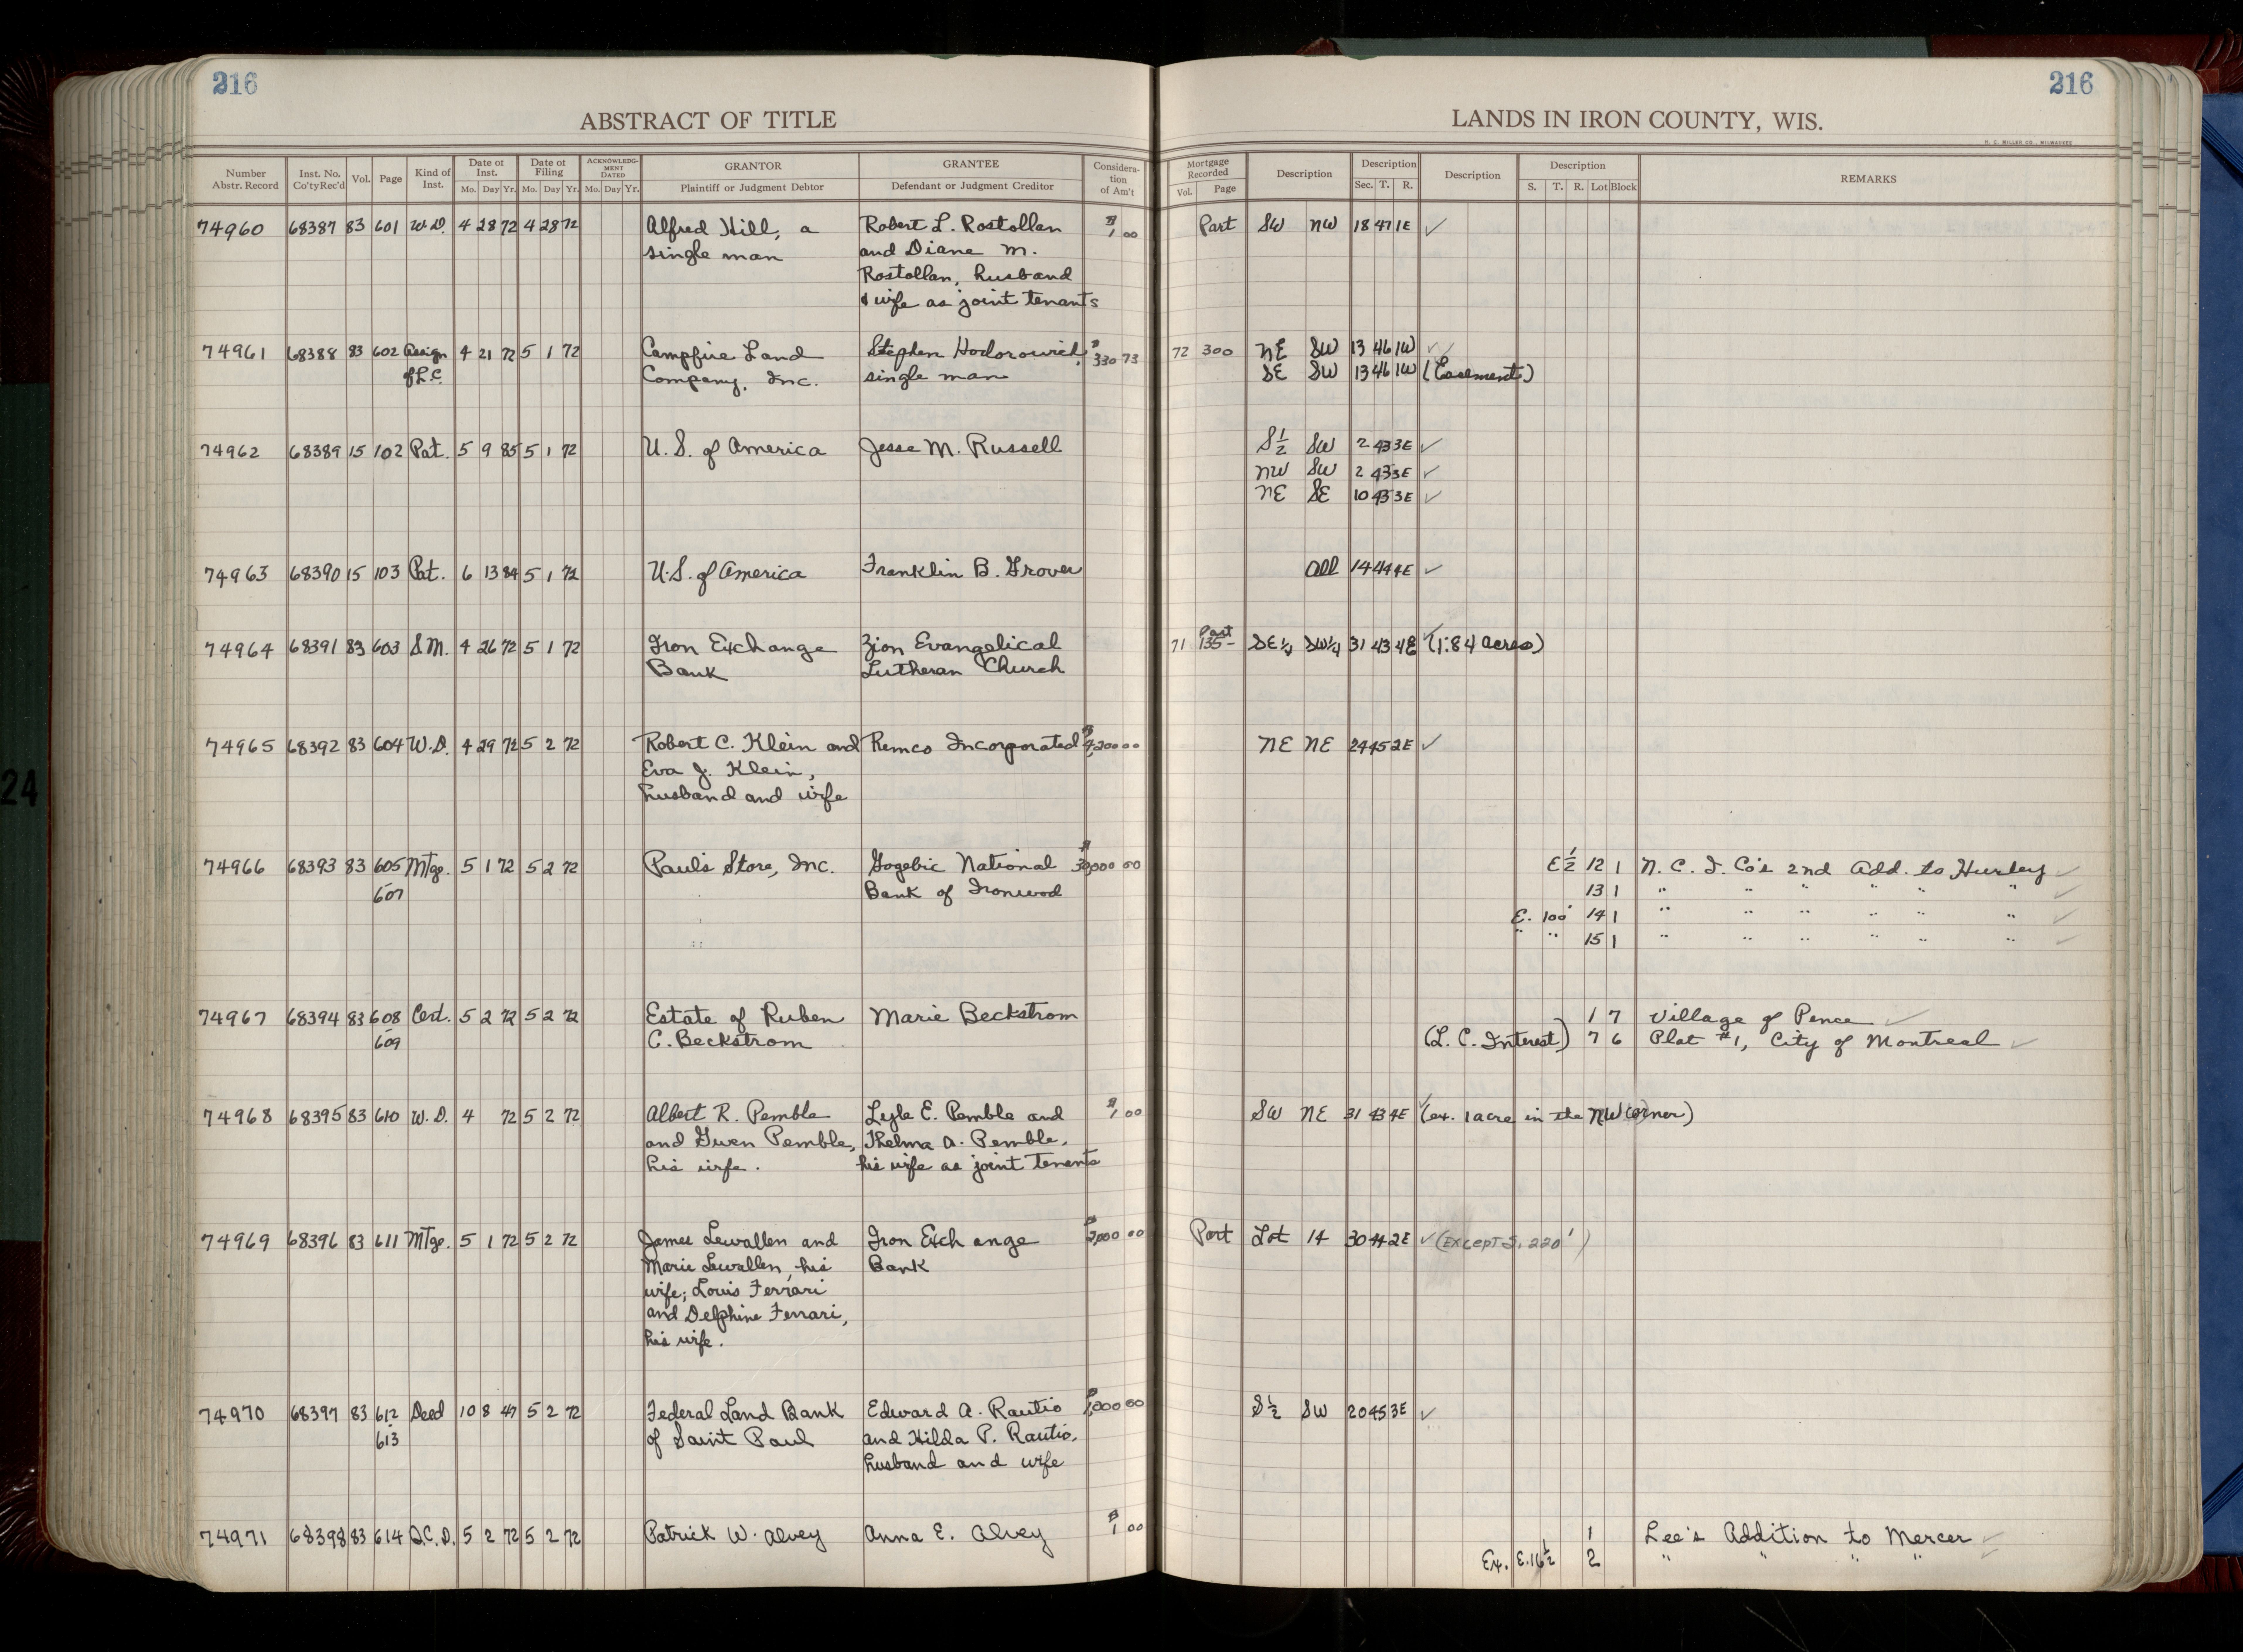 216
216
ABSTRACT OF TITLE
LANDS IN IRON COUNTY, WIS.
H. C. MILLER CO., MILWAUKEE
Number Abstr. Record | Inst. No. Co'ty Rec'd | Vol. | Page | Kind of Inst. | Date of Inst. Mo. Day Yr. | Date of Filing Mo. Day Yr. | ACKNOWLEDGMENT DATED Mo. Day Yr. | GRANTOR Plaintiff or Judgment Debtor | GRANTEE Defendant or Judgment Creditor | Consideration of Am't | Mortgage Recorded Vol. Page | Description | Description Sec. T. R. | Description | Description S. T. R. Lot Block | REMARKS
74960 68387 83 601 W.D. 4 28 72 4 28 72 Alfred Hill, a Robert L. Rostollan $1 00 Part SW NW 18 47 1E ✓
single man and Diane M.
Rostollan, husband
& wife as joint tenants
74961 68388 83 602 Assign 4 21 72 5 1 72 Campfire Land Stephen Hodorowich, $330 73 72 300 NE SW 13 46 1W ✓
of L.C. Company, Inc. single man SE SW 13 46 1W (Easement)
74962 68389 15 102 Pat. 5 9 85 5 1 72 U. S. of America Jesse M. Russell S½ SW 2 43 3E ✓
NW SW 2 43 3E ✓
NE SE 10 43 3E ✓
74963 68390 15 103 Pat. 6 13 84 5 1 72 U.S. of America Franklin B. Grover All 14 44 4E ✓
74964 68391 83 603 S.M. 4 26 72 5 1 72 Iron Exchange Zion Evangelical 71 135- Part SE¼ SW¼ 31 43 4E ✓ (1.84 acres)
Bank Lutheran Church
74965 68392 83 604 W.D. 4 29 72 5 2 72 Robert C. Klein and Remco Incorporated 00 NE NE 24 45 2E ✓
Eva J. Klein,
husband and wife
74966 68393 83 605 Mtge. 5 1 72 5 2 72 Paul's Store, Inc. Gogebic National $30,000 00 E½ 12 1 N. C. I. Co's 2nd Add. to Hurley ✓
607 Bank of Ironwood 13 1 " " " " " " ✓
E. 100' 14 1 " " " " " " ✓
" " 15 1 " " " " " " ✓
74967 68394 83 608 Cert. 5 2 72 5 2 72 Estate of Ruben Marie Beckstrom 1 7 Village of Pence ✓
609 C. Beckstrom (L. C. Interest) 7 6 Plat #1, City of Montreal ✓
74968 68395 83 610 W.D. 4 72 5 2 72 Albert R. Pemble Lyle E. Pemble and $1 00 SW NE 31 43 4E ✓ (ex. 1 acre in the NW corner)
and Gwen Pemble, Thelma A. Pemble,
his wife. his wife as joint tenants
74969 68396 83 611 Mtge. 5 1 72 5 2 72 James Lewallen and Iron Exchange 00 Part Lot 14 30 44 2E ✓ (Except S. 220')
Marie Lewallen, his Bank
wife; Louis Ferrari
and Delphine Ferrari,
his wife.
74970 68397 83 612 Deed 10 8 47 5 2 72 Federal Land Bank Edward A. Rautio $1,000 00 S½ SW 20 45 3E ✓
613 of Saint Paul and Hilda P. Rautio,
husband and wife
74971 68398 83 614 Q.C.D. 5 2 72 5 2 72 Patrick W. Alvey Anna E. Alvey $1 00 1 Lee's Addition to Mercer ✓
Ex. E. 16½ 2 " " " " ✓
24